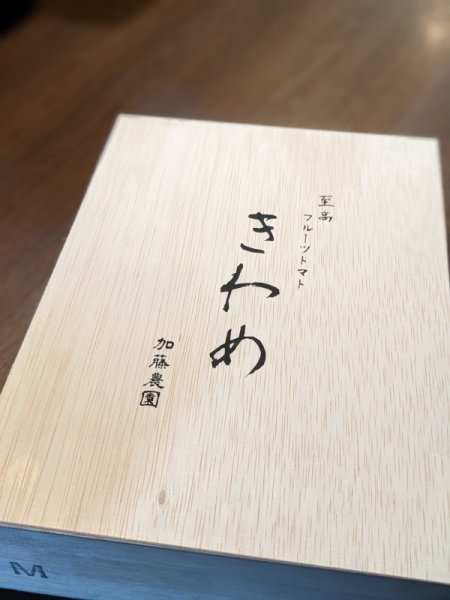 至高
フルーツトマト
きわめ
加藤農園
M